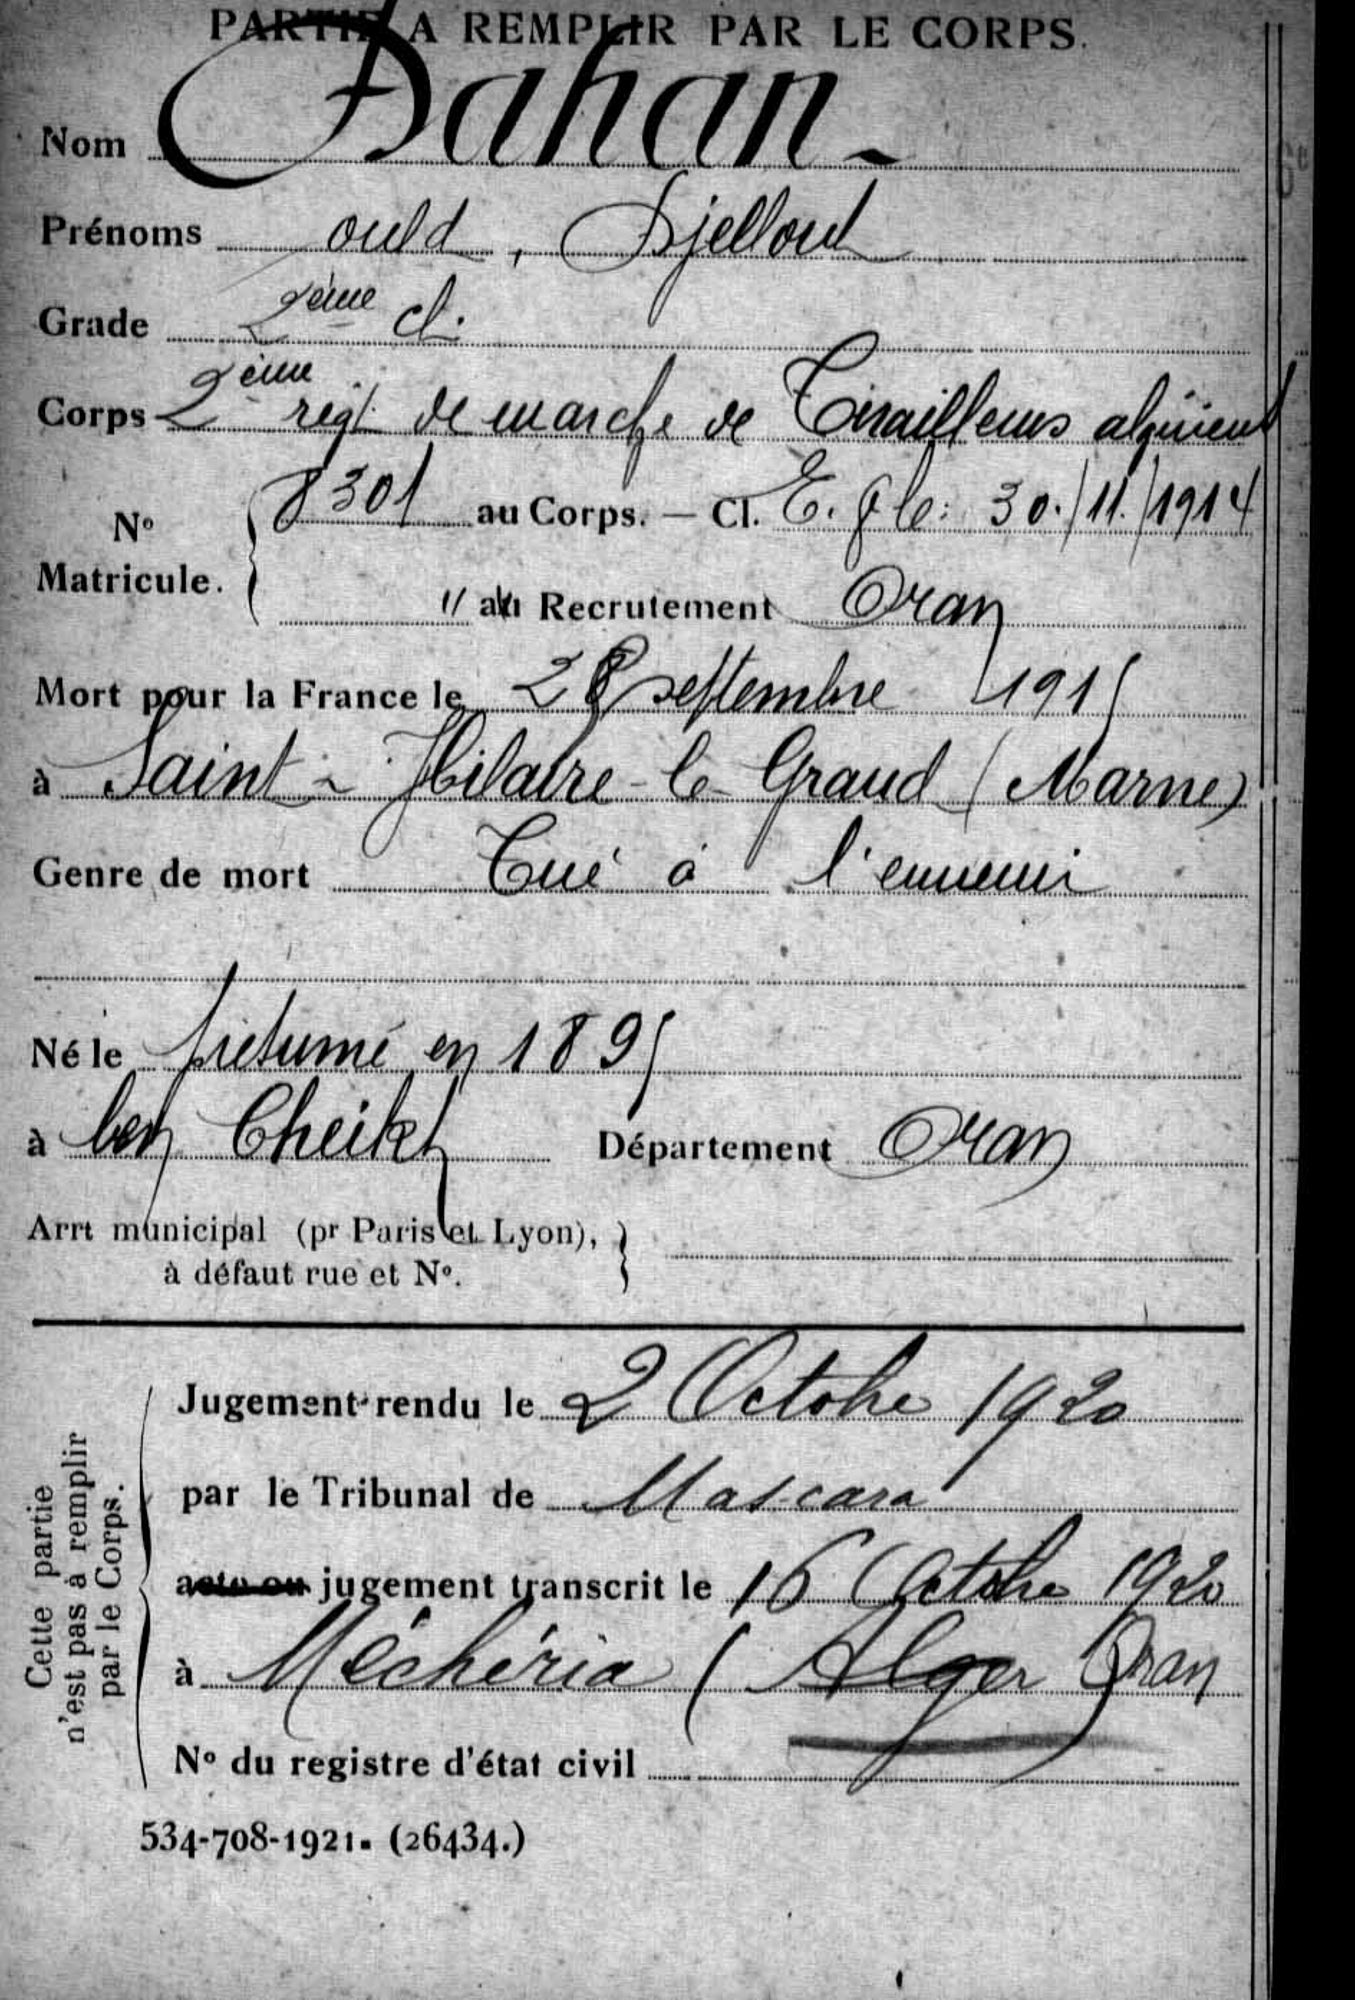 PARTIE A REMPLIR PAR LE CORPS.
Nom Dahan
Prénoms ould, Djelloul
Grade 2ème cl.
Corps 2ème régt de marche de Tirailleurs algériens
No Matricule. 8301 au Corps. — Cl. E. V. le: 30./11./1914
" au Recrutement Oran
Mort pour la France le 28 septembre 1915
à Saint-Hilaire-le-Grand (Marne)
Genre de mort Tué à l'ennemi
Né le présumé en 1895
à ben Cheikh Département Oran
Arrt municipal (pr Paris et Lyon),
à défaut rue et No.
Cette partie
n'est pas à remplir
par le Corps.
Jugement rendu le 2 Octobre 1920
par le Tribunal de Mascara
acte ou jugement transcrit le 16 Octobre 1920
à Méchéria (Alger Oran)
No du registre d'état civil
534-708-1921. (26434.)